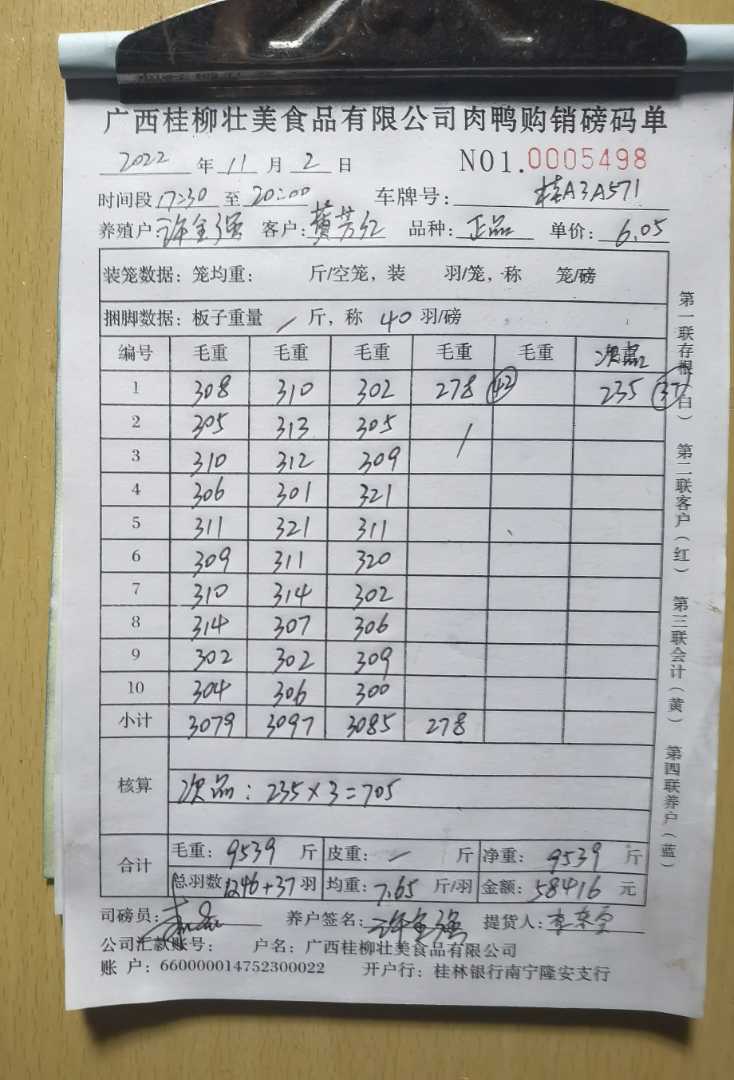 广西桂柳壮美食品有限公司肉鸭购销磅码单
2022 年 11 月 2 日 NO1.0005498
时间段 17:30 至 20:00 车牌号: 桂A3A571
养殖户 许金强 客户: 黄芳红 品种: 正品 单价: 6.05
装笼数据: 笼均重: 斤/空笼, 装 羽/笼, 称 笼/磅
捆脚数据: 板子重量 / 斤, 称 40 羽/磅
编号 毛重 毛重 毛重 毛重 毛重 次品
1 308 310 302 278 42 235 37
2 305 313 305 /
3 310 312 309
4 306 301 321
5 311 321 311
6 309 311 320
7 310 314 302
8 314 307 306
9 302 302 309
10 304 306 300
小计 3079 3097 3085 278
核算 次品: 235×3=705
合计 毛重: 9539 斤 皮重: / 斤 净重: 9539 斤
总羽数 1246+37 羽 均重: 7.65 斤/羽 金额: 58416 元
司磅员: 养户签名: 许金强 提货人:
公司汇款账号: 户名: 广西桂柳壮美食品有限公司
账 户: 660000014752300022 开户行: 桂林银行南宁隆安支行
第一联存根(白) 第二联客户(红) 第三联会计(黄) 第四联养户(蓝)